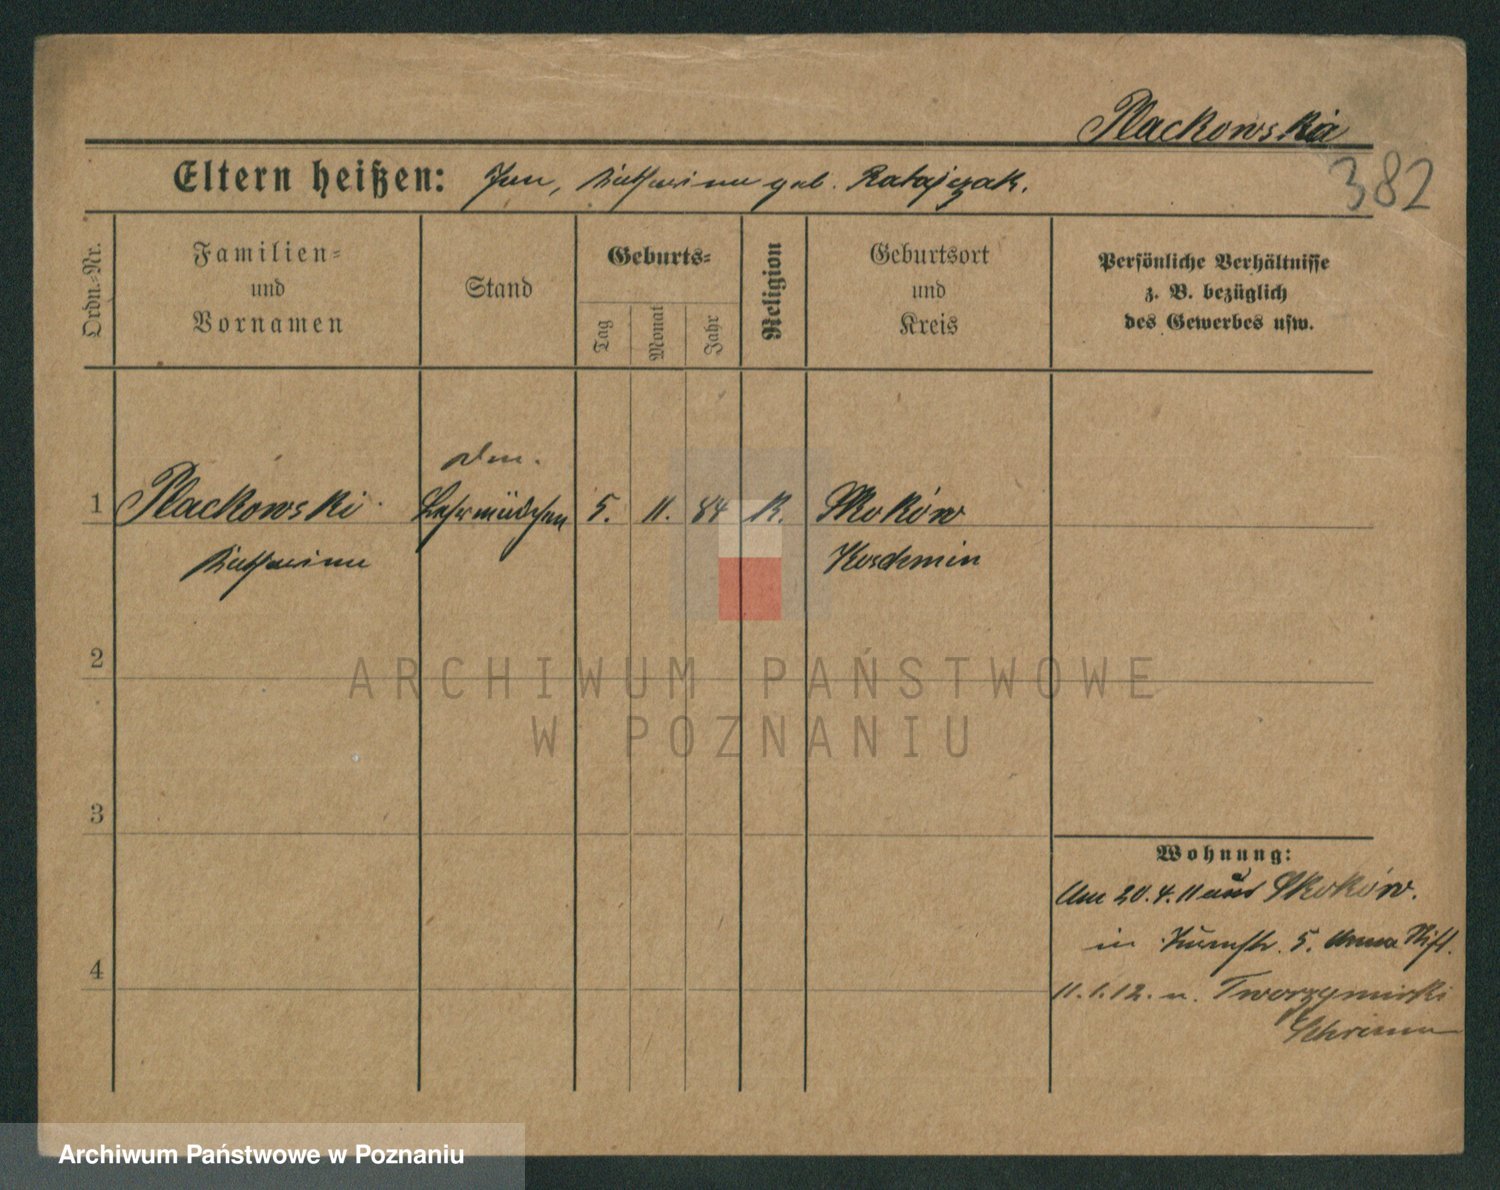 Plackowska
382
Eltern heißen: Jan, Katharina geb. Ratajczak.
Ordn.-Nr.
Familien-
und
Vornamen
Stand
Geburts-
Tag
Monat
Jahr
Religion
Geburtsort
und
Kreis
Persönliche Verhältnisse
z. B. bezüglich
des Gewerbes usw.
1 Plackowski Lehrmädchen 5. 11. 84 K. Skoków
Katharina Koschmin
2
3
4
Wohnung:
Am 20.4.11 aus Skoków.
in Turmstr. 5. Anna Stift.
11.1.12. n. Tworzymirki
Schrimm
ARCHIWUM PAŃSTWOWE
W POZNANIU
Archiwum Państwowe w Poznaniu